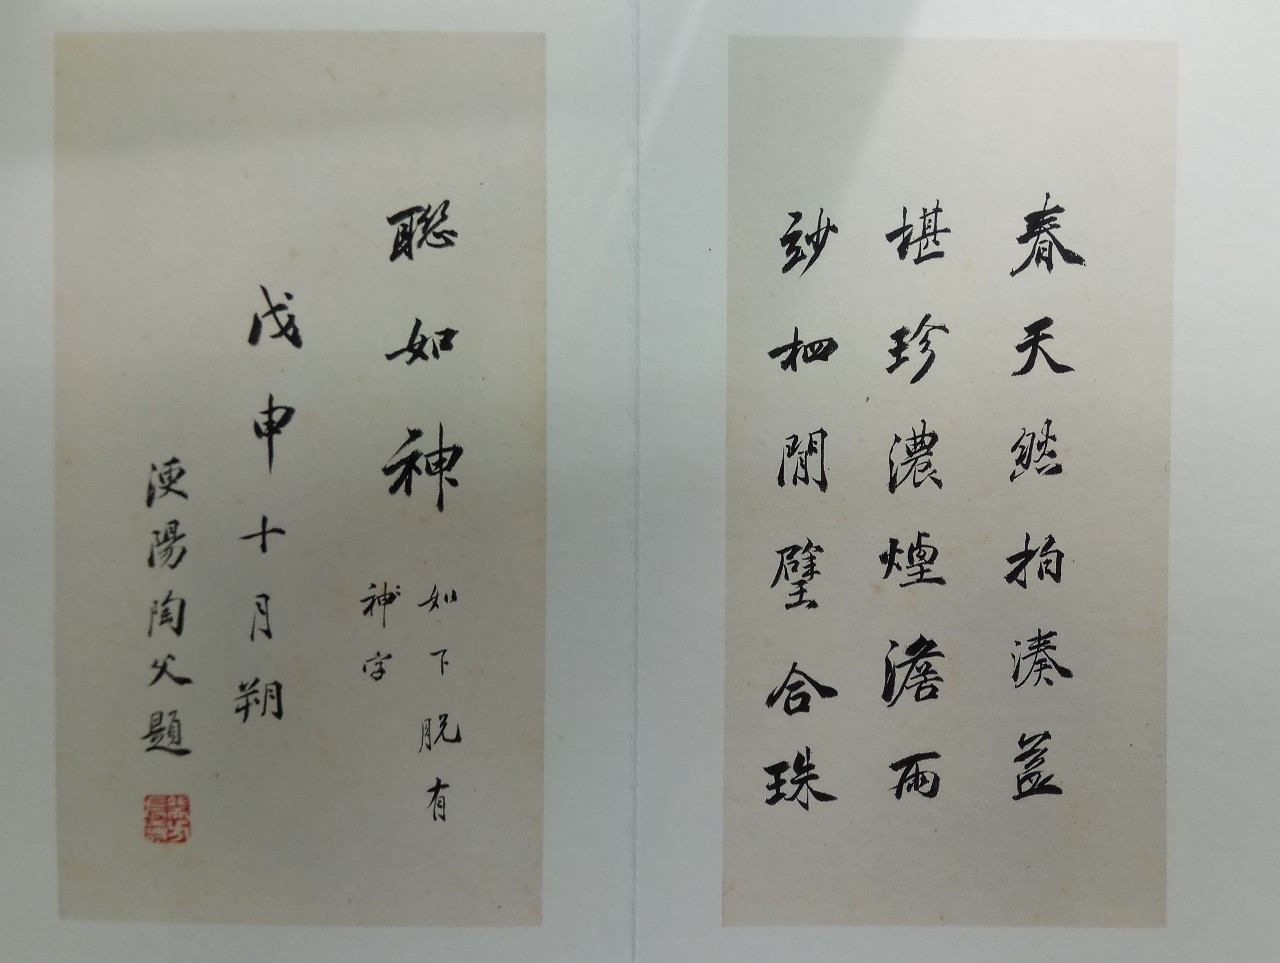 春天然拍湊益
堪珍濃煙澹雨
玅栖閒璧合珠
聡如神
如下脱有
神字
戊申十月朔
溲陽陶父題